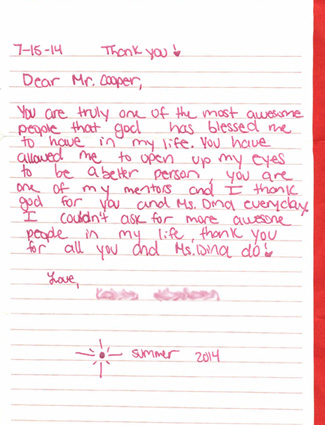 7-15-14 Thank you!
Dear Mr. Cooper,
You are truly one of the most awesome
people that god has blessed me
to have in my life. You have
allowed me to open up my eyes
to be a better person, you are
one of my mentors and I thank
god for you and Ms. Dina everyday
I couldn't ask for more awesome
people in my life, thank you
for all you and Ms. Dina do!
Love,
summer 2014